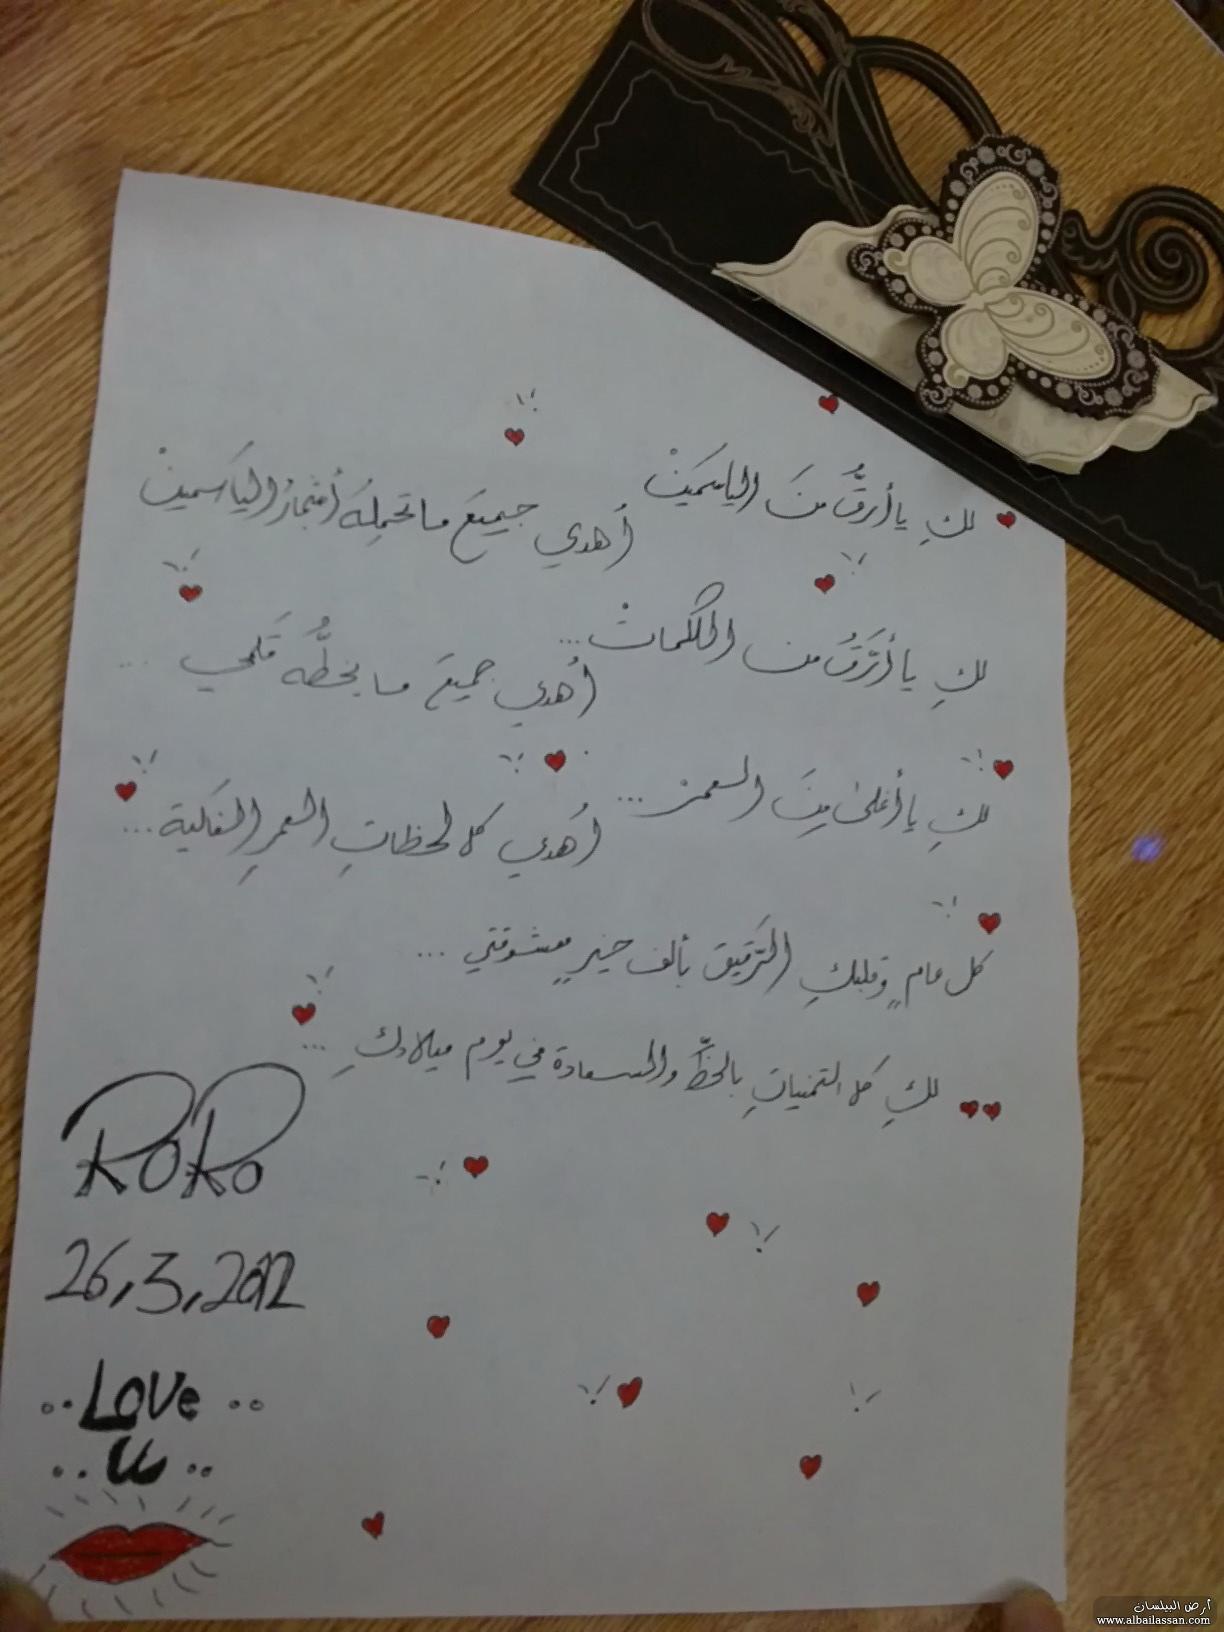 لكِ يا أرقُّ منَ الياسمَينْ أهدي جميعَ ما تحملِهَ أشجارُ الياسمينْ
لكِ يا أرَقُّ من الكلماتْ... أُهدي جميعَ ما يخطُّه قلَمي ...
لكِ يا أغلىْ مِنَ العمرْ ... أُهدي كل لحظاتِ العمرِ الغَالية ...
كل عام وقلبكِ الرَّقيق بألف خيرٍ معشوقتي ...
لكِ كل التمنياتِ بالحظِّ والسعادة في يوم ميلادكِ ...
RoRo
26,3,2012
..Love..
..U..
أرض البيلسان
www.albailassan.com